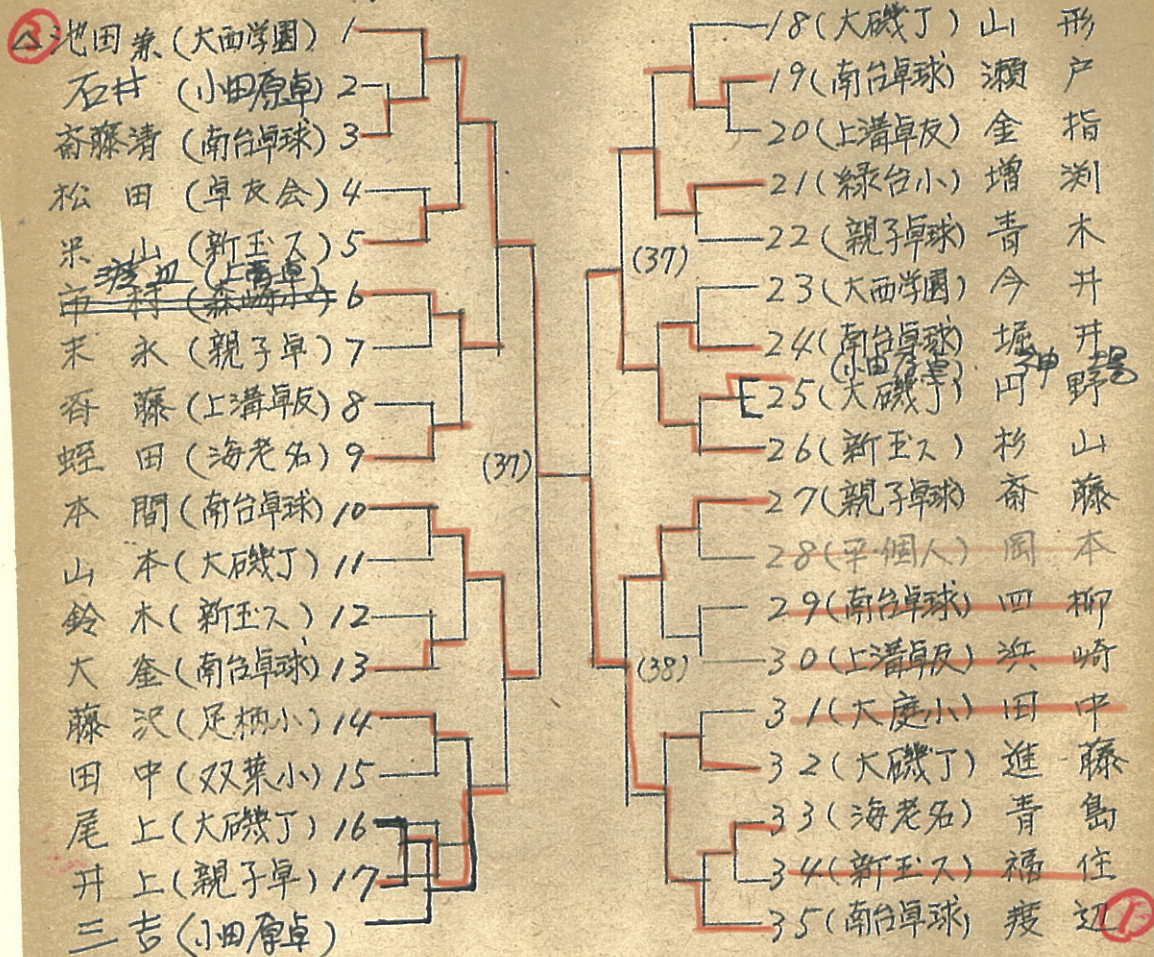 ③
△池田兼(大西学園) 1
石井 (小田原卓) 2
斎藤清 (南台卓球) 3
松田 (卓友会) 4
米山 (新玉ス) 5
6
末永 (親子卓) 7
斉藤 (上溝卓友) 8
蛭田 (海老名) 9
本間 (南台卓球) 10
山本 (大磯丁) 11
鈴木 (新玉ス) 12
大釜 (南台卓球) 13
藤沢 (足柄小) 14
田中 (双葉小) 15
尾上 (大磯丁) 16
井上 (親子卓) 17
三吉 (小田原卓)
(37)
18 (大磯丁) 山形
19 (南台卓球) 瀬戸
20 (上溝卓友) 金指
21 (緑台小) 増渕
22 (親子卓球) 青木
(37)
23 (大西学園) 今井
24 (南台卓球) 堀井
25 (大磯丁) 円野
26 (新玉ス) 杉山
27 (親子卓球) 斎藤
28 (平・個人) 岡本
29 (南台卓球) 四柳
30 (上溝卓友) 浜崎
(38)
31 (大庭小) 田中
32 (大磯丁) 進藤
33 (海老名) 青島
34 (新玉ス) 福住
35 (南台卓球) 渡辺
①